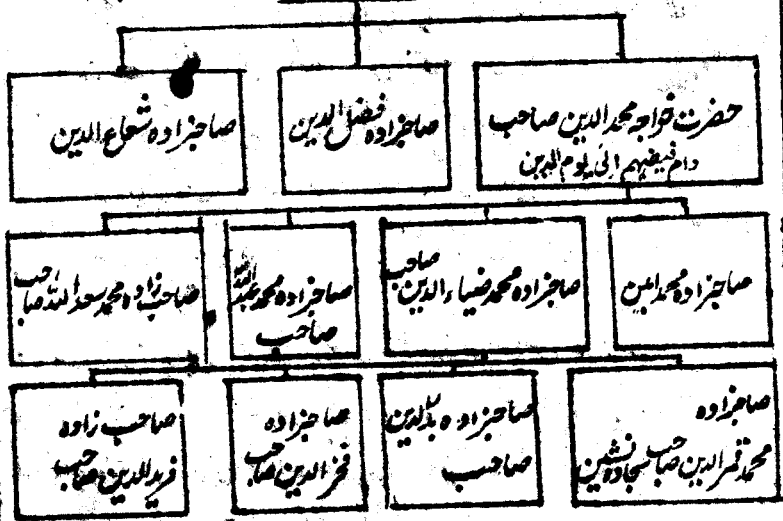 حضرت خواجہ محمد الدین صاحب
دام فیضہم الی یوم الدین
صاحبزادہ فضل الدین
صاحبزادہ شعاع الدین
صاحبزادہ محمد امین
صاحبزادہ محمد ضیاء الدین صاحب
صاحبزادہ محمد عبداللہ
صاحب
صاحب زادہ محمد سعد اللہ صاحب
صاحبزادہ
محمد قمر الدین صاحب سجادہ نشین
صاحبزادہ بدرالدین
صاحب
صاحبزادہ
فخر الدین صاحب
صاحب زادہ
فرید الدین صاحب